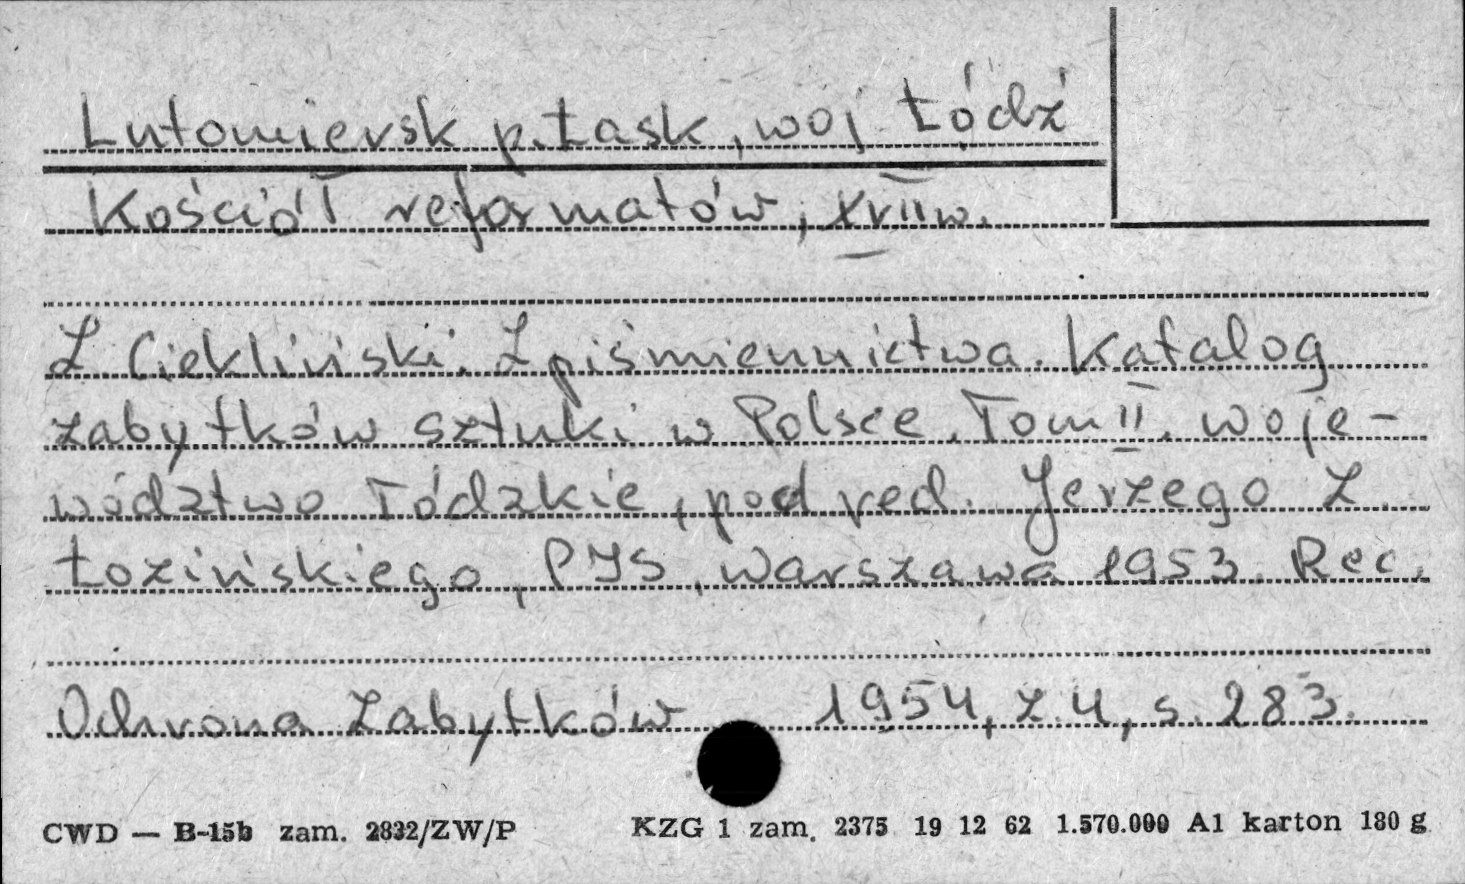 Lutomiersk p. Łask, woj Łódź
Kościół reformatów, XVII w.
Z Ciekliński. Z piśmiennictwa. Katalog
zabytków sztuki w Polsce. Tom II. woje-
wództwo łódzkie, pod red. Jerzego Z.
Łozińskiego, PIS, Warszawa 1953. Rec.
Ochrona Zabytków 1954, z. 4, s. 283.
CWD — B-15b zam. 2832/ZW/P KZG 1 zam. 2375 19 12 62 1.570.000 A1 karton 180 g